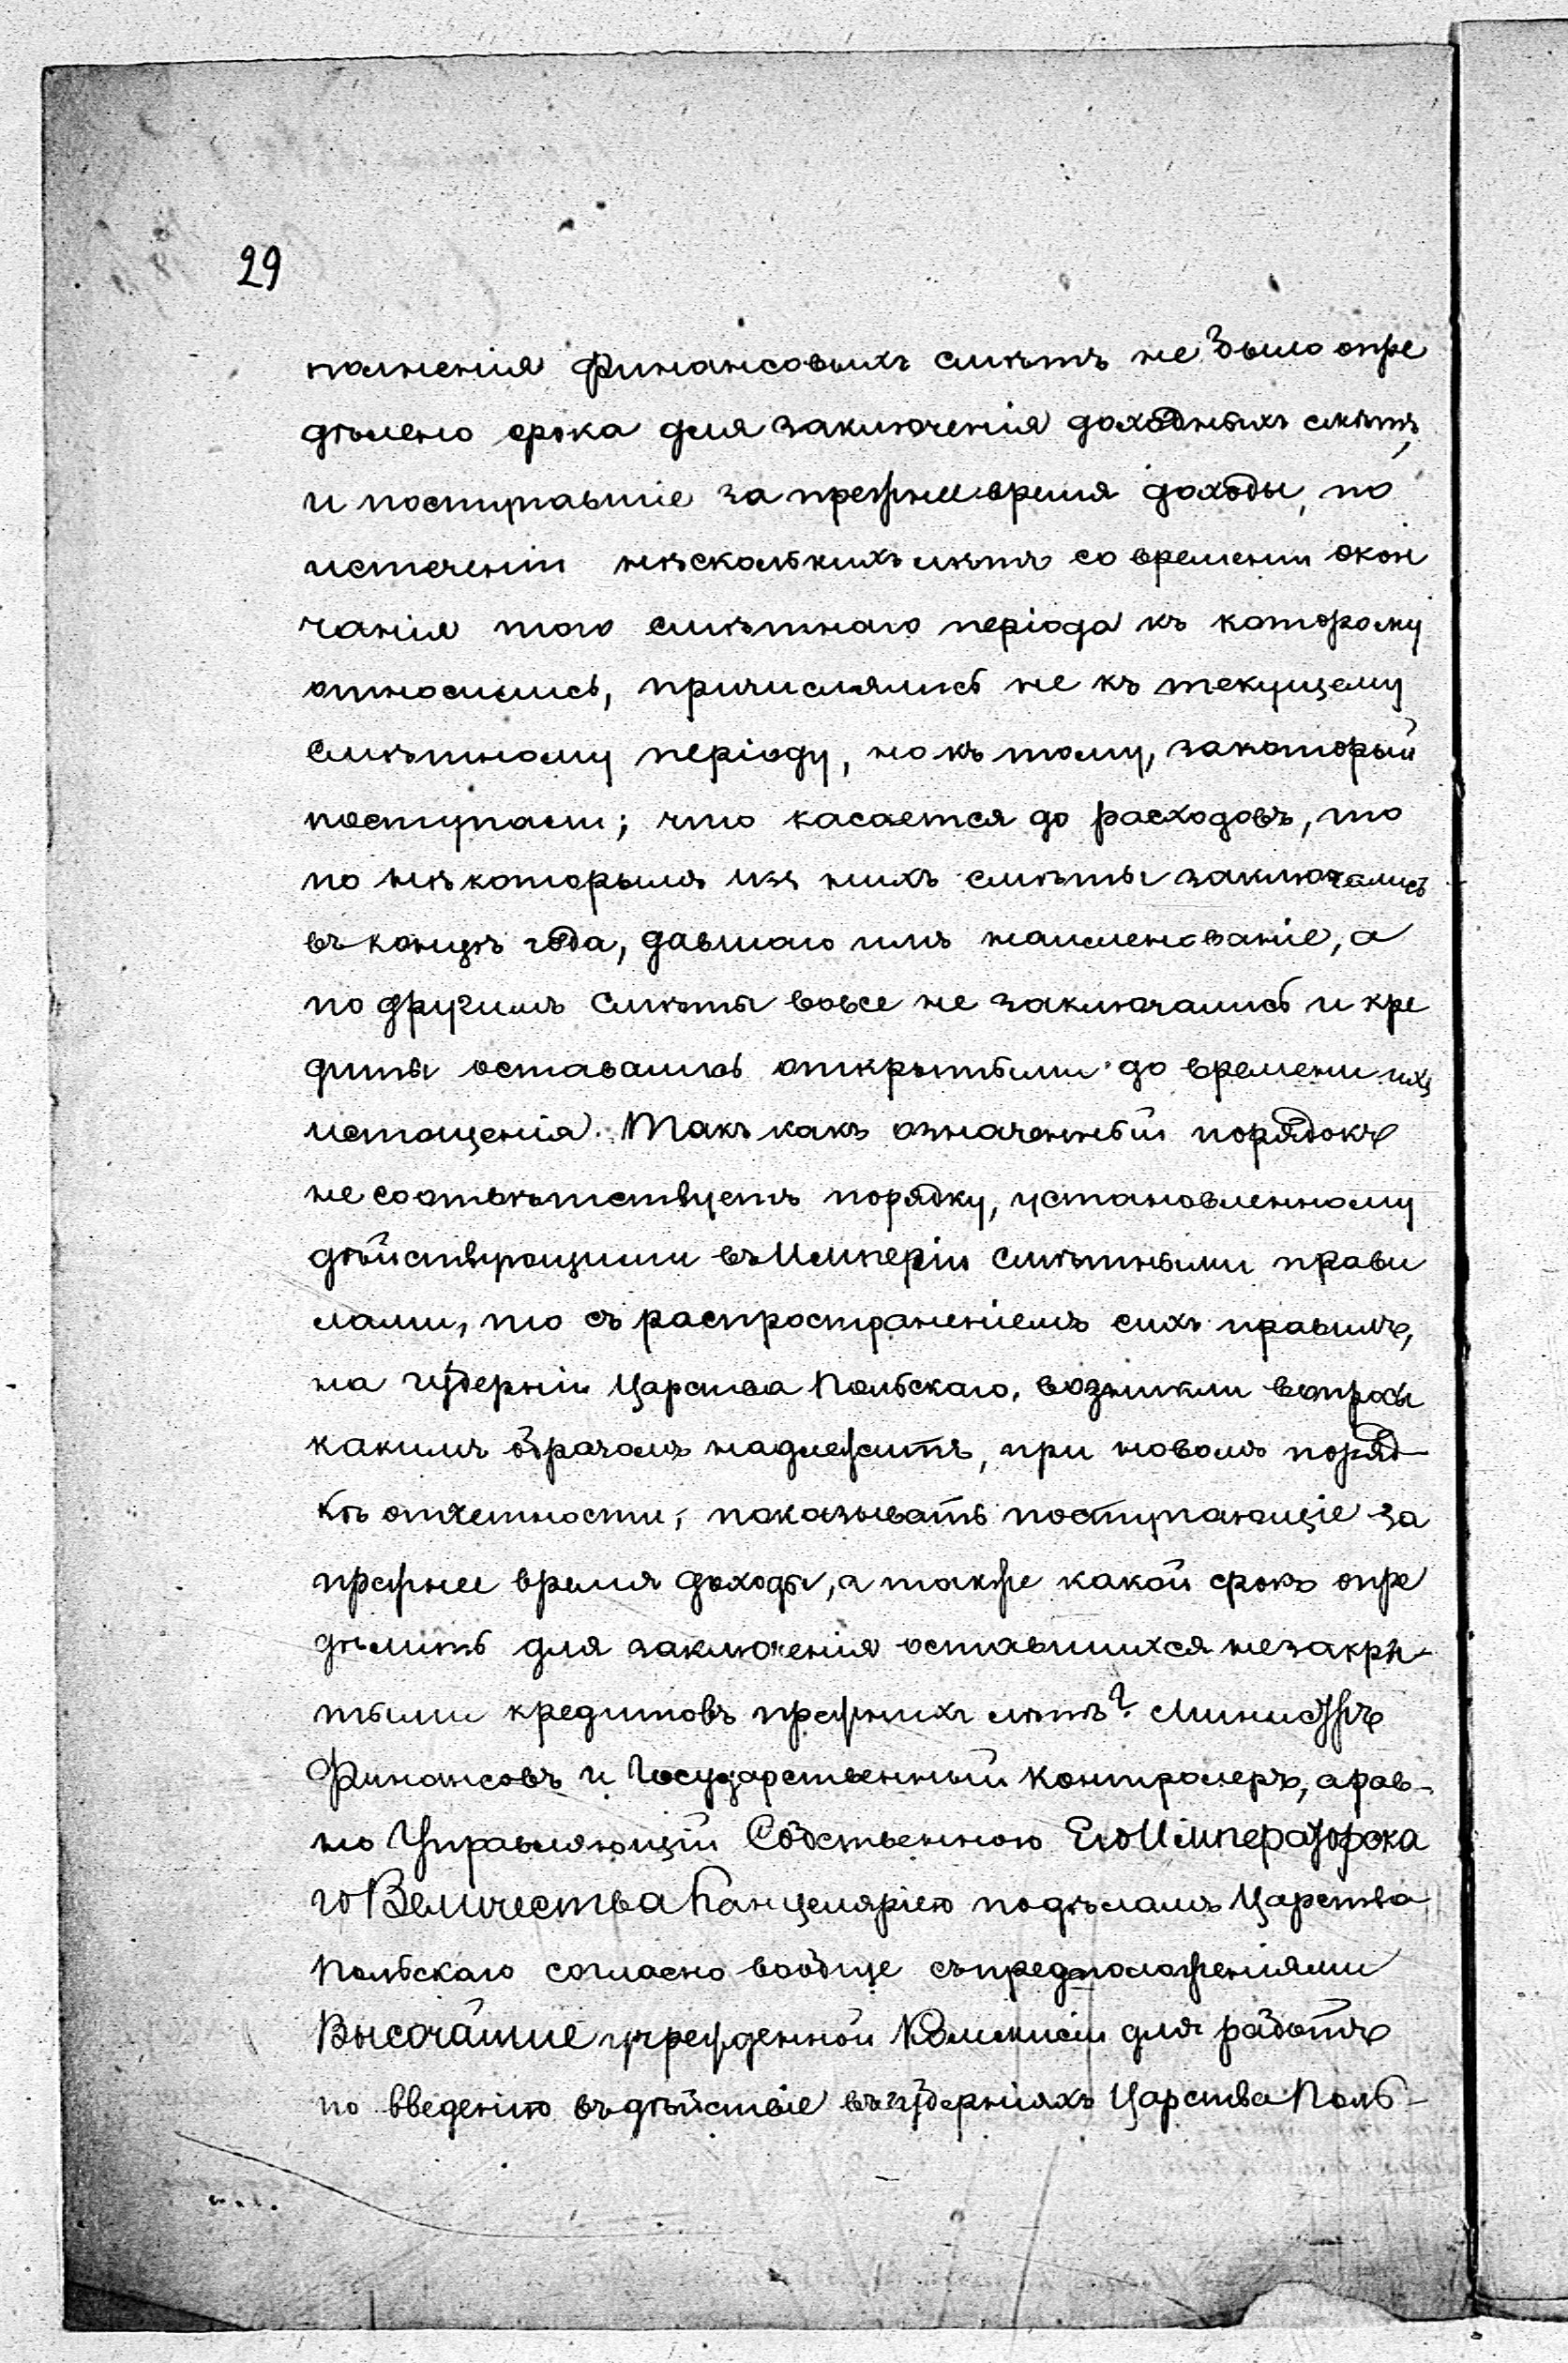 29
полненія финансовыхъ смѣтъ не было опре
дѣлено срока для заключенія доходныхъ смѣтъ,
и поступавшіе за прежнее время доходы, по
истеченіи нѣсколькихъ лѣтъ со времени окон
чанія того смѣтнаго періода къ которому
относились, причислялись не къ текущему
смѣтному періоду, но къ тому, за который
поступали; что касается до расходовъ, то
по нѣкоторымъ изъ нихъ смѣты заключались
въ концѣ года, давшаго имъ наименованіе, а
по другимъ смѣты вовсе не заключались и кре
диты оставались открытыми до времени ихъ
истощенія. Такъ какъ означенный порядокъ
не соотвѣтствуетъ порядку, установленному
дѣйствующими въ Имперіи смѣтными прави
лами, то съ распространеніемъ сихъ правилъ,
на губерніи Царства Польскаго, возникли вопросы
какимъ образомъ надлежитъ, при новомъ поряд-
кѣ отчетности, показывать поступающіе за
прежнее время доходы, а также какой срокъ опре
дѣлить для заключенія оставшихся незакры-
тыми кредитовъ прежнихъ лѣтъ? Министръ
Финансовъ и Государственный Контролеръ, а рав-
но Управляющій Собственною Его Императорска
го Величества Канцеляріею по дѣламъ Царства
Польскаго согласно вообще съ предположеніями
Высочайше учрежденной Коммисіи для работъ
по введенію въ дѣйствіе въ губерніяхъ Царства Поль-